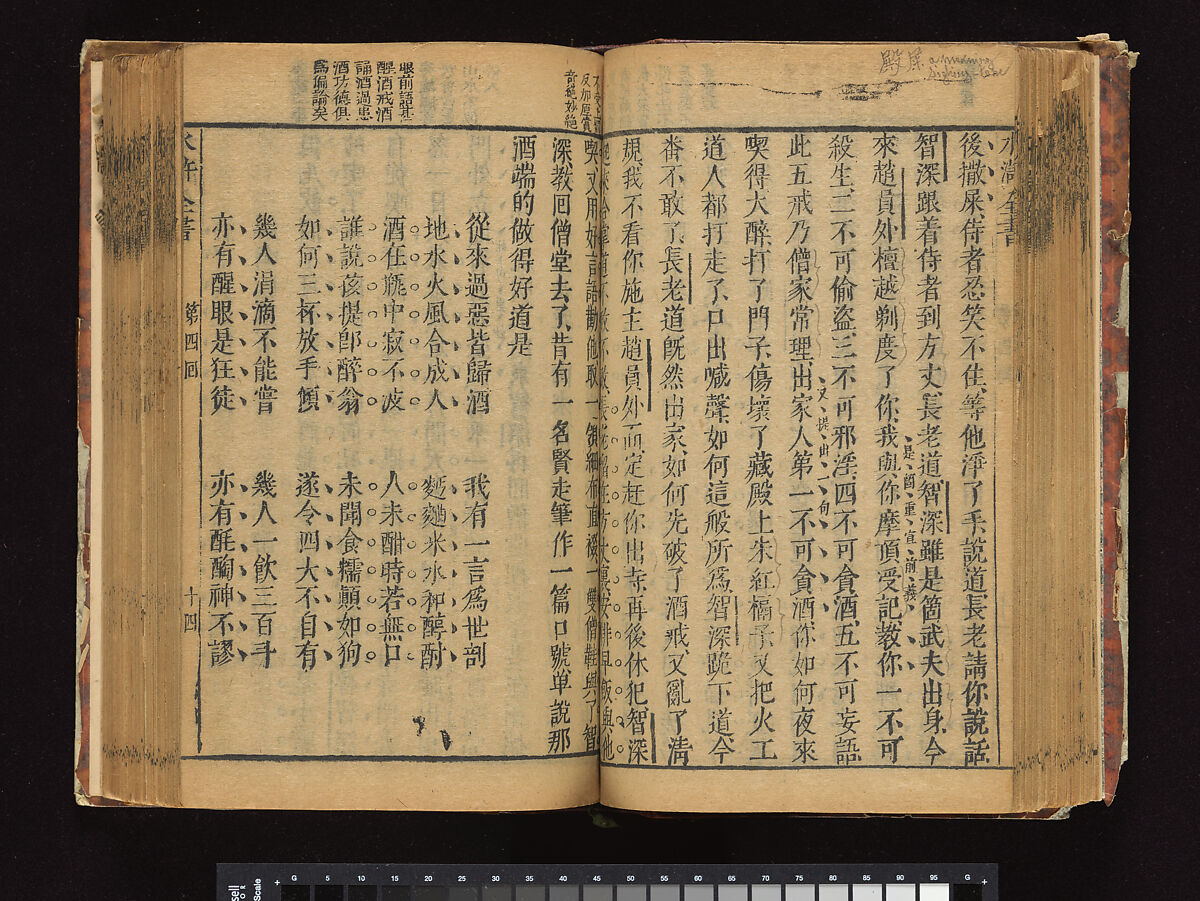 水滸全書
殿屎
後撒屎、侍者忍笑不住、等他淨了手、說道、長老請你說話、
智深跟着侍者到方丈、長老道、智深雖是箇武夫出身、今
是箇重宣前義
來趙員外檀越剃度了你、我與你摩頂受記、教你一不可
殺生、二不可偷盜、三不可邪淫、四不可貪酒、五不可妄語、
又提出一句
此五戒乃僧家常理、出家人第一不可貪酒、你如何夜來
喫得大醉、打了門子、傷壞了藏殿上朱紅槅子、又把火工
道人都打走了、口出喊聲、如何這般所爲、智深跪下道、今
番不敢了、長老道旣然出家、如何先破了酒戒、又亂了清
規、我不看你施主趙員外面、定赶你出寺、再後休犯、智深
起來合掌道、不敢不敢、長老留在方丈裏、安排早飯與他
反加厚賞
奇絕妙絕
喫、又用好言語勸他、取一領細布直裰、一雙僧鞋、與了智
深、教囘僧堂去了、昔有一名賢、走筆作一篇口號、單說那
酒、端的做得好、道是
從來過惡皆歸酒 我有一言爲世剖
地水火風合成人 麪麯米水和醇酎
酒在瓶中寂不波 人未酣時若無口
誰說孩提卽醉翁 未聞食糯顛如狗
如何三杯放手傾 遂令四大不自有
幾人涓滴不能嘗 幾人一飲三百斗
亦有醒眼是狂徒 亦有酕醄神不謬
眼前語甚
醒酒戒酒
誦酒過患
酒功德俱
爲偏論矣
水滸全書 第四囘 十四
G 5 10 15 20 25 30 35 40 45 50 55 60 65 70 75 80 85 90 95 G